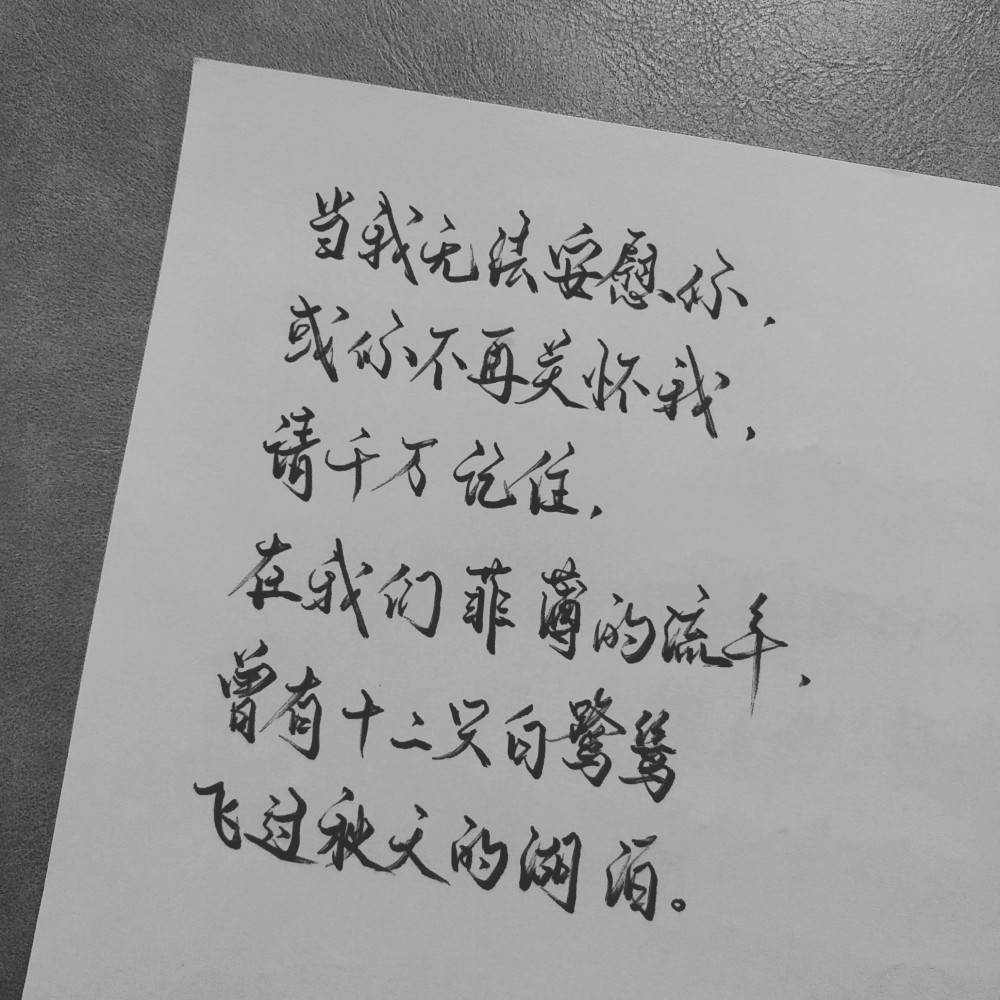 当我无法安慰你，
或你不再关怀我，
请千万记住，
在我们菲薄的流年，
曾有十二只白鹭鸶
飞过秋天的湖泊。